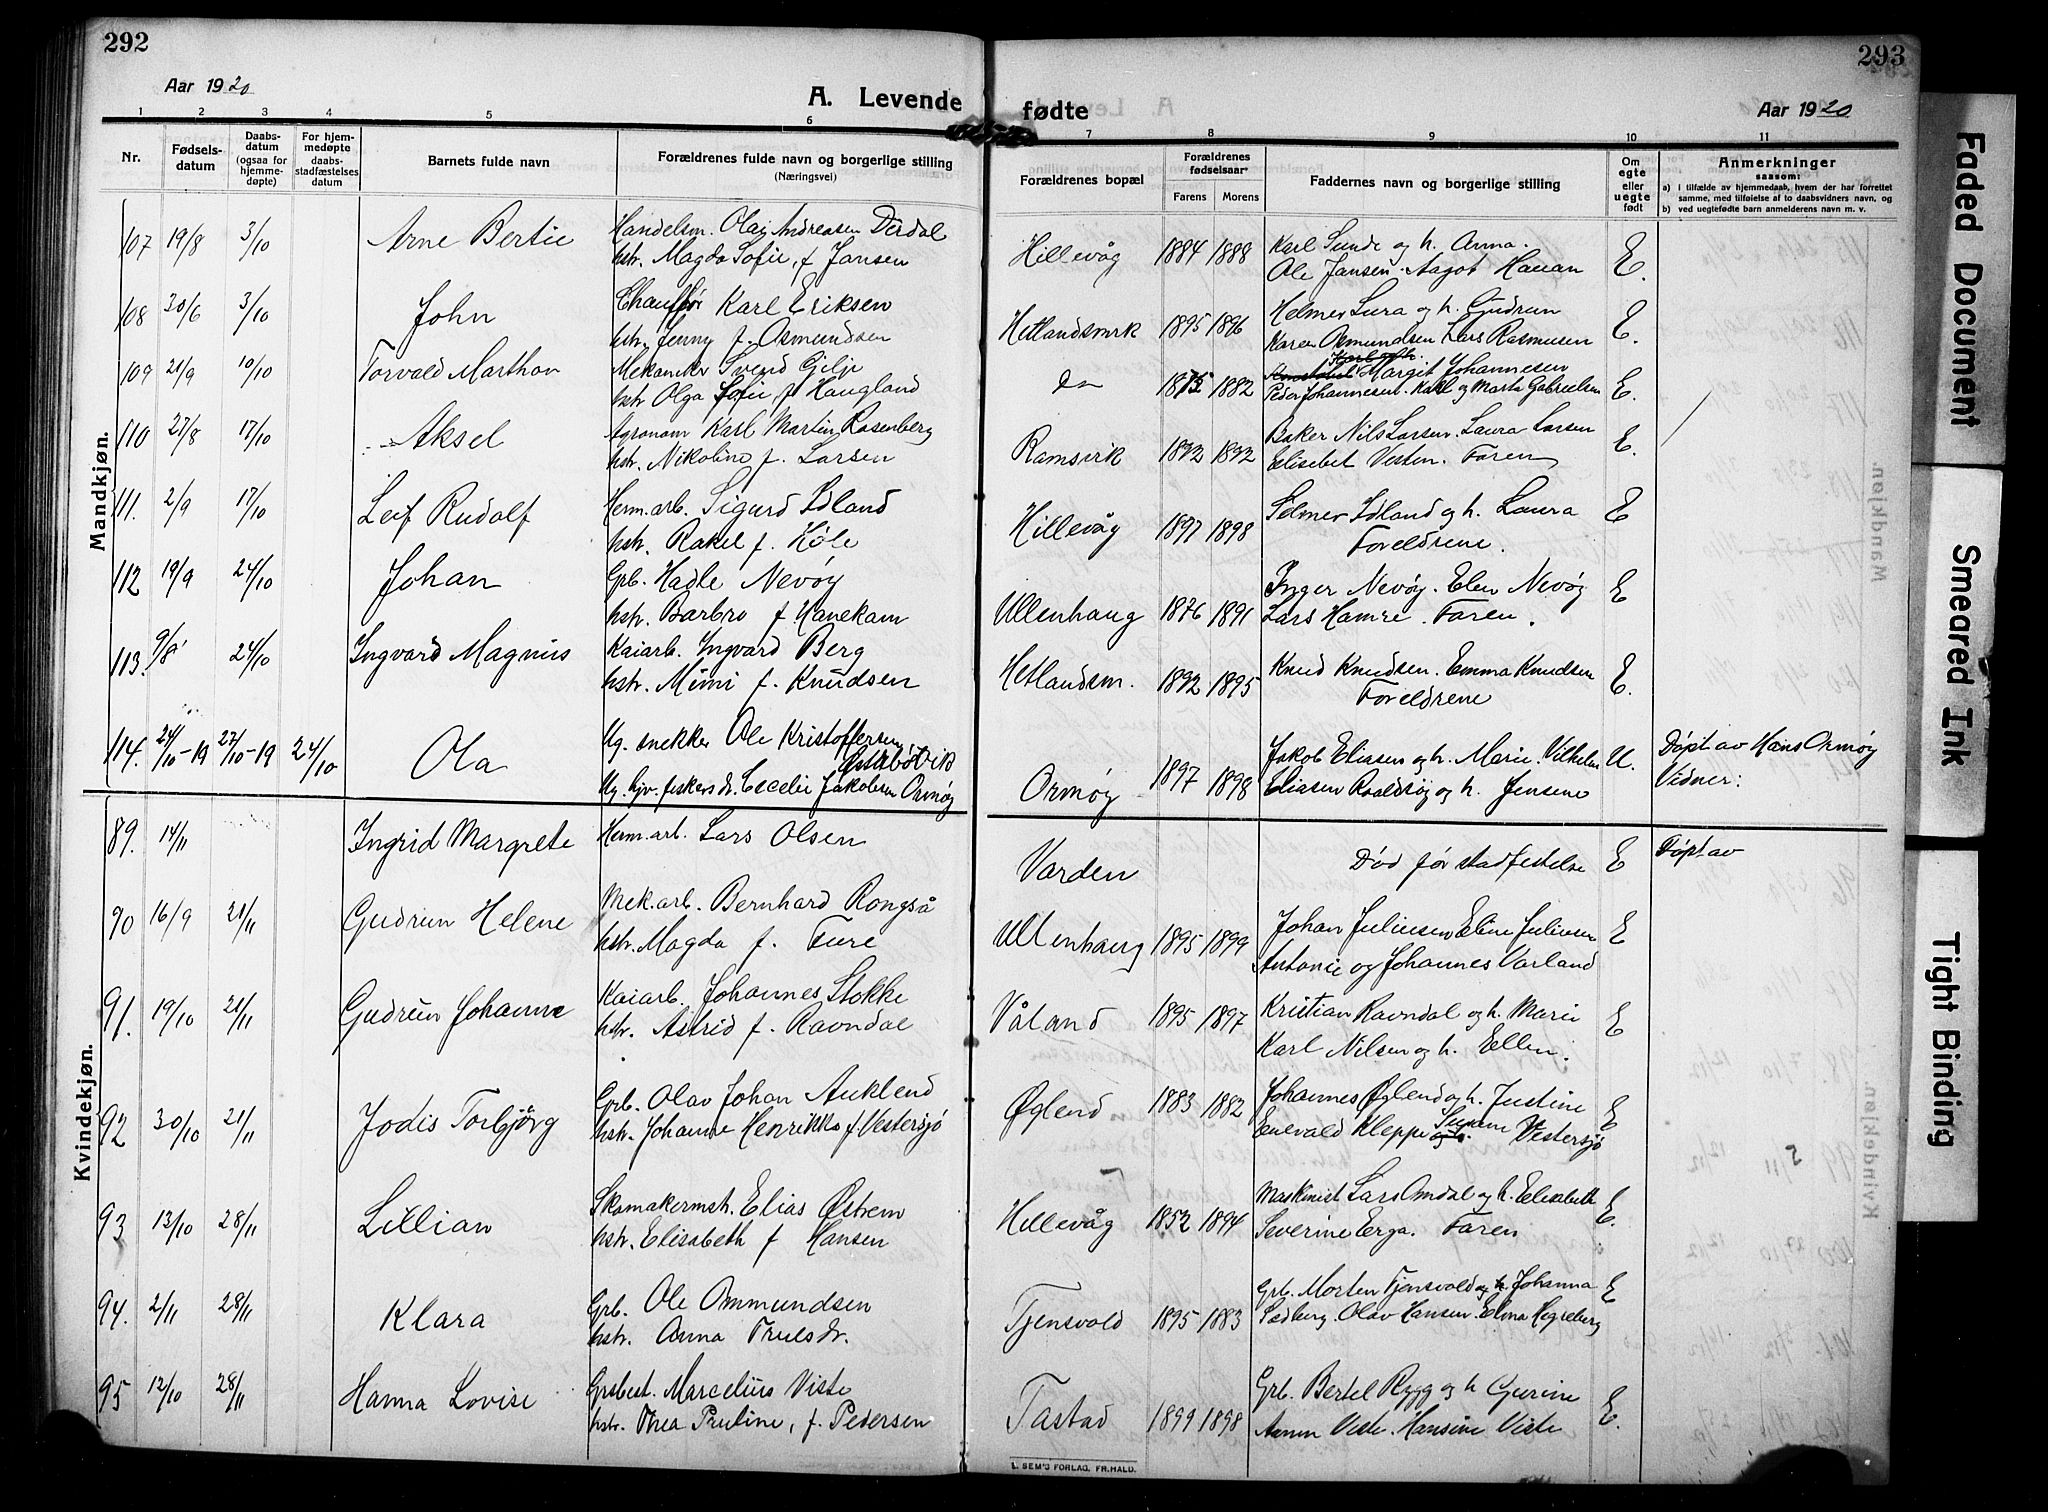 292
293
Aar 1920
A. Levende
fødte
Aar 1920
1 2 3 4 5 6 7 8 9 10 11
Nr.
Fødsels-
datum
Daabs-
datum
(ogsaa for
hjemme-
døpte)
For hjem-
medøpte
daabs-
stadfæstelses
datum
Barnets fulde navn
Forældrenes fulde navn og borgerlige stilling
(Næringsvei)
Forældrenes bopæl
Forældrenes
fødselsaar
Farens Morens
Faddernes navn og borgerlige stilling
Om
egte
eller
uegte
født
Anmerkninger
saasom:
a) i tilfælde av hjemmedaab, hvem der har forrettet
samme, med tilføielse af to daabsvidners navn, og
b) ved uegtefødte barn anmelderens navn m. v.
Mandkjøn.
107 19/8 3/10 Arne Bertie Handelsm. Olay Andreasen Dirdal
hstr. Magda Sofie, f. Jansen
Hillevåg 1884 1888 Karl Sunde og h. Anna.
Ole Jansen. Aagot Hauan E.
108 30/6 3/10 John Chauffør Karl Eriksen
hstr. Jenny f. Asmundsen
Hetlandsmrk 1895 1896 Helmer Sura og h. Gudrun
Karen Osmundsen Lars Rasmusen E.
109 21/9 10/10 Torvald Marthon Mekaniker Svend Gilje
hstr Olga Sofie f Haugland
do 1875 1882 Margit Johannesen
Peder Johannesen. Karl og Marta Gabrielsen E.
110 27/8 17/10 Aksel Agronom Karl Martin Rosenberg
hstr. Nikoline f. Larsen
Ramsvik 1892 1892 Baker Nils Larsen. Laura Larsen
Elisebet Vesten. Faren E.
111. 2/9 17/10 Leif Rudolf Herm. arb. Sigurd Idland
hstr. Rakel f. Høle
Hillevåg 1897 1898 Selmer Idland og h. Laura
Foreldrene. E
112 19/9 24/10 Johan Grb. Hadle Nevøy
hstr. Barbro f Hanekam
Ullenhaug 1876 1891 Inger Nevøy. Elen Nevøy
Lars Hamre. Faren. E
113. 9/8 24/10 Ingvard Magnus Kaiarb. Ingvard Berg
hstr. Mimi f. Knudsen
Hetlandsm. 1892 1895 Knud Knudsen. Emma Knudsen
Foreldrene E.
114. 24/10-19 27/10-19 24/10 Ola Ug. snekker Ole Kristoffersen
Østabøvik
Ug. hjv. fiskers dr. Cecelie Jakobsen Ormøy
Ormøy 1897 1898 Jakob Eliasen og h. Marie. Vilhelm
Eliasen Roaldsøy og h. Jensine U. Døpt av Hans Ormøy
Vidner:
Kvindekjøn.
89. 14/11 Ingrid Margrete Herm. arb. Lars Olsen
Varden Død før stadfestelse E Døpt av
90 16/9 21/11 Gudrun Helene Mek. arb. Bernhard Rongså
hstr. Magda f. Ture
Ullenhaug 1895 1899 Johan Juliusen Eline Juliusen
Antonie og Johannes Varland E
91. 19/10 21/11 Gudrun Johanne Kaiarb. Johannes Stokke
hstr. Astrid f. Ravndal
Våland 1895 1897 Kristian Ravndal og h. Marie
Karl Nilsen og h. Ellen. E
92 30/10 21/11 Jodis Torbjørg Grb. Olav Johan Auklend
hstr. Johanne Henrikka f. Vestersjø
Øglend 1883 1882 Johannes Øglend og h. Justine
Enevald Kleppe Vestersjø E
93 13/10 28/11 Lillian Skomakermstr. Elias Østrem
hstr. Elisabeth f Hansen
Hillevåg 1852 1894 Maskinist Lars Omdal og h. Elisabeth
Severine Erga. Faren E.
94. 2/11 28/11 Klara Grb. Ole Ommundsen
hstr. Anna Trulsdr.
Tjensvold 1895 1883 Grb. Morten Tjensvold og h. Johanna
Sædberg. Olav Hansen. Elma Hegreberg E
95 12/10 28/11 Hanna Lovise Grbest. Marcelius Viste
hstr. Thea Pauline, f. Pedersen
Tastad 1899 1898 Grb. Bertel Rygg og h Gurine
Aamon Viste. Hansine Viste E.
L. SEM'S FORLAG, FR.HALD.
Faded Document
Smeared Ink
Tight Binding